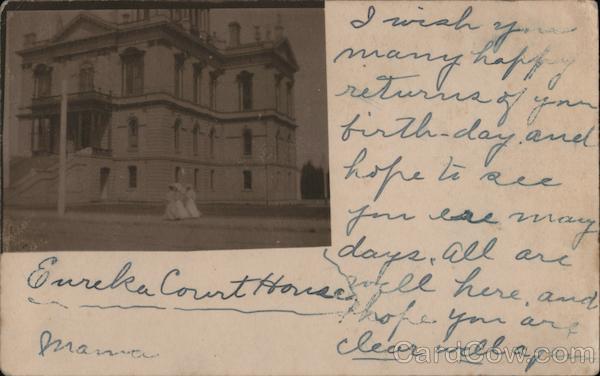 I wish you
many happy
returns of your
birth-day, and
hope to see
you ere many
days. All are
well here, and
I hope you are
clear
Eureka Court House
Mama
CardCow.com